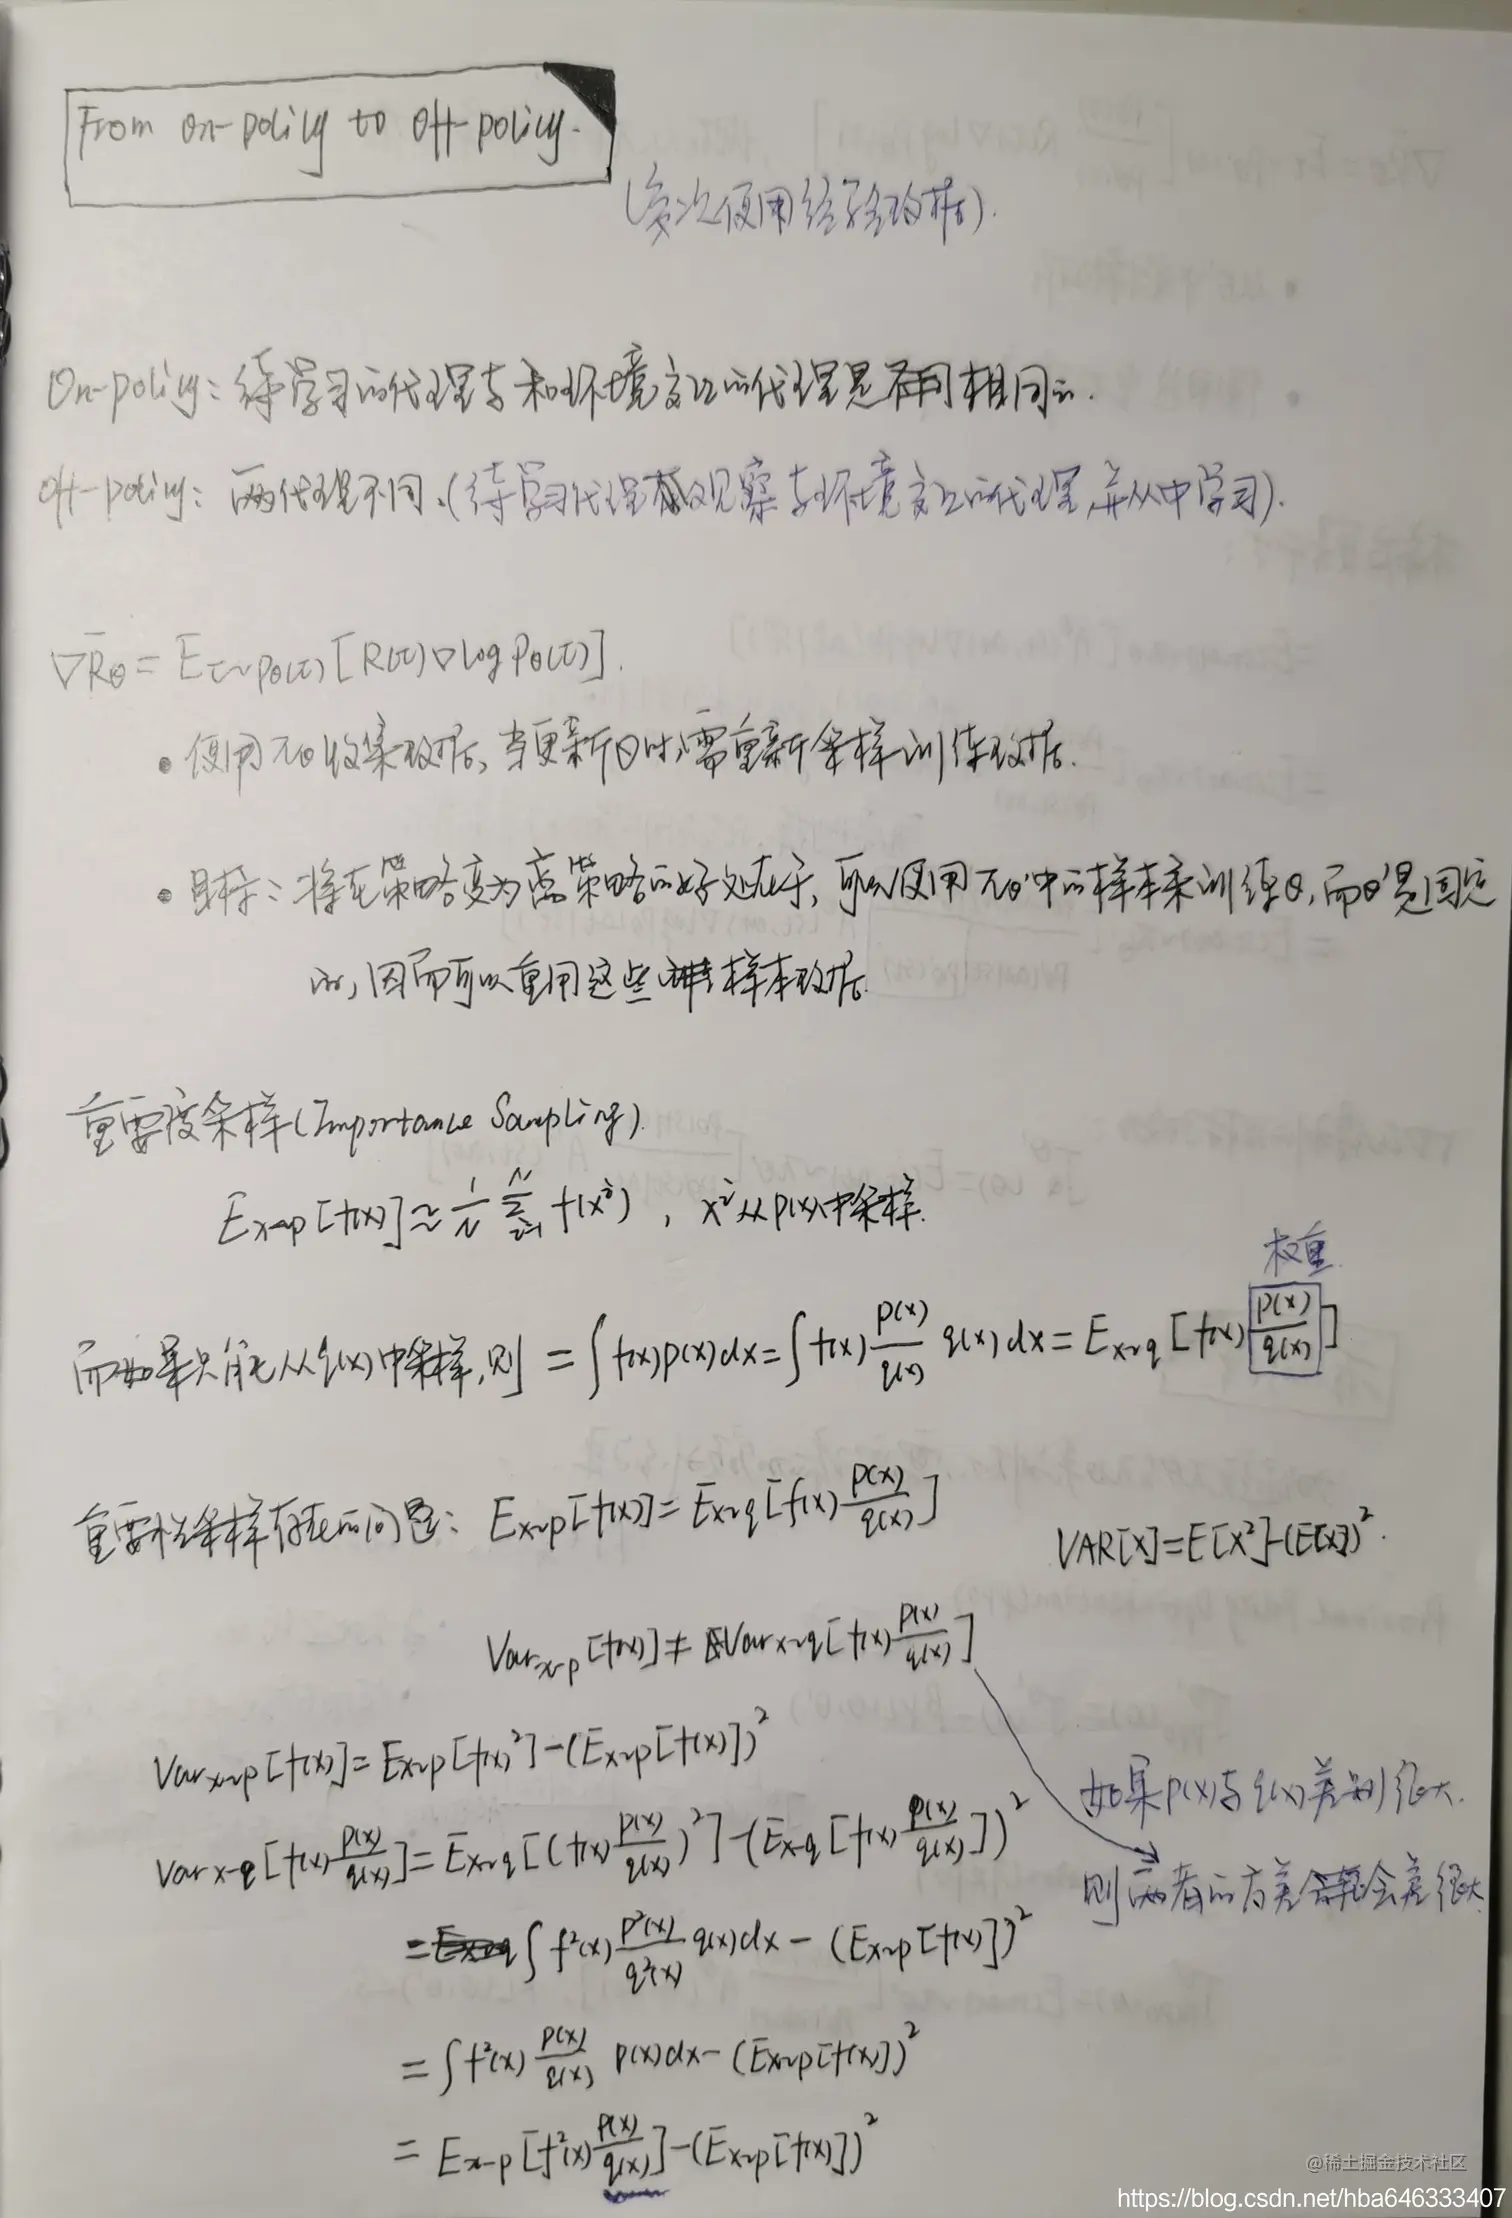 From on-policy to off-policy.
(多次使用经验数据).
On-policy: 待学习的代理与和环境交互的代理是相同的.
off-policy: 两代理不同.(待学习代理观察与环境交互的代理,并从中学习).
∇R̄θ = E_{τ~pθ(τ)} [R(τ)∇log pθ(τ)].
• 使用πθ收集数据, 当更新θ时, 需重新采样训练数据.
• 目标: 将在策略变为离策略的好处在于, 可以使用πθ'中的样本来训练θ, 而θ'是固定
的, 因而可以重用这些样本数据.
重要度采样(Importance Sampling).
E_{x~p}[f(x)] ≈ \frac{1}{N} \sum_{i=1}^{N} f(x^i) , x^i从p(x)中采样.
权重.
而如果只能从q(x)中采样,则 = ∫f(x)p(x)dx = ∫f(x)\frac{p(x)}{q(x)} q(x)dx = E_{x~q}[f(x)\frac{p(x)}{q(x)}]
重要性采样存在的问题: E_{x~p}[f(x)] = E_{x~q}[f(x)\frac{p(x)}{q(x)}]
VAR[X]=E[X²]-(E[X])².
Var_{x~p}[f(x)] ≠ Var_{x~q}[f(x)\frac{p(x)}{q(x)}]
Var_{x~p}[f(x)] = E_{x~p}[f(x)²]-(E_{x~p}[f(x)])²
如果p(x)与q(x)差别很大.
Var_{x~q}[f(x)\frac{p(x)}{q(x)}] = E_{x~q}[(f(x)\frac{p(x)}{q(x)})²]-(E_{x~q}[f(x)\frac{p(x)}{q(x)}])²
则两者的方差会差很大
= ∫f²(x)\frac{p²(x)}{q²(x)}q(x)dx - (E_{x~p}[f(x)])²
= ∫f²(x)\frac{p(x)}{q(x)} p(x)dx - (E_{x~p}[f(x)])²
= E_{x~p}[f²(x)\frac{p(x)}{q(x)}]-(E_{x~p}[f(x)])²
@稀土掘金技术社区
https://blog.csdn.net/hba646333407